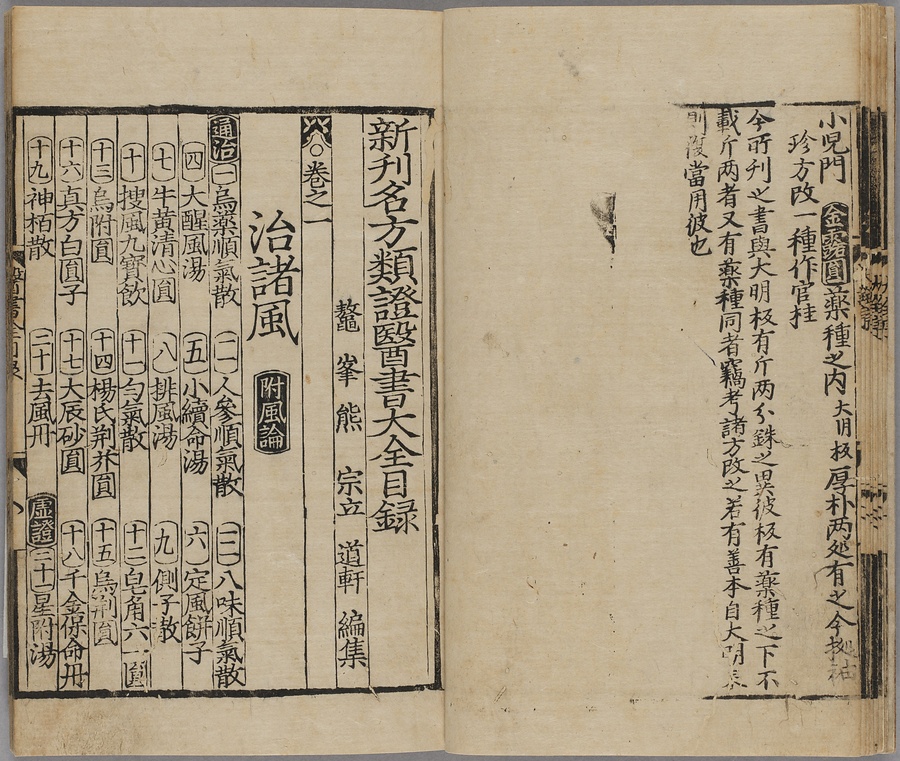 小児門 金露圓 藥種之内 大明板 厚朴两処有之今拠祐
珍方改一種作官桂
今所刊之書與大明板有斤两分銖之異彼板有藥種之下不
載斤两者又有藥種同者竊考諸方改之若有善本自大明来
則復當用彼也
新刊名方類證醫書大全目録
鰲峯熊 宗立 道軒 編集
卷之一
治諸風 附風論
通治 一 烏藥順氣散 二 人參順氣散 三 八味順氣散
四 大醒風湯 五 小續命湯 六 定風餅子
七 牛黄清心圓 八 排風湯 九 側子散
十 搜風九寳飲 十一 勻氣散 十二 皂角六一圓
十三 烏附圓 十四 楊氏荆芥圓 十五 烏荆圓
十六 真方白圓子 十七 大辰砂圓 十八 千金保命丹
十九 神柏散 二十 去風丹 虛證 二十一 星附湯